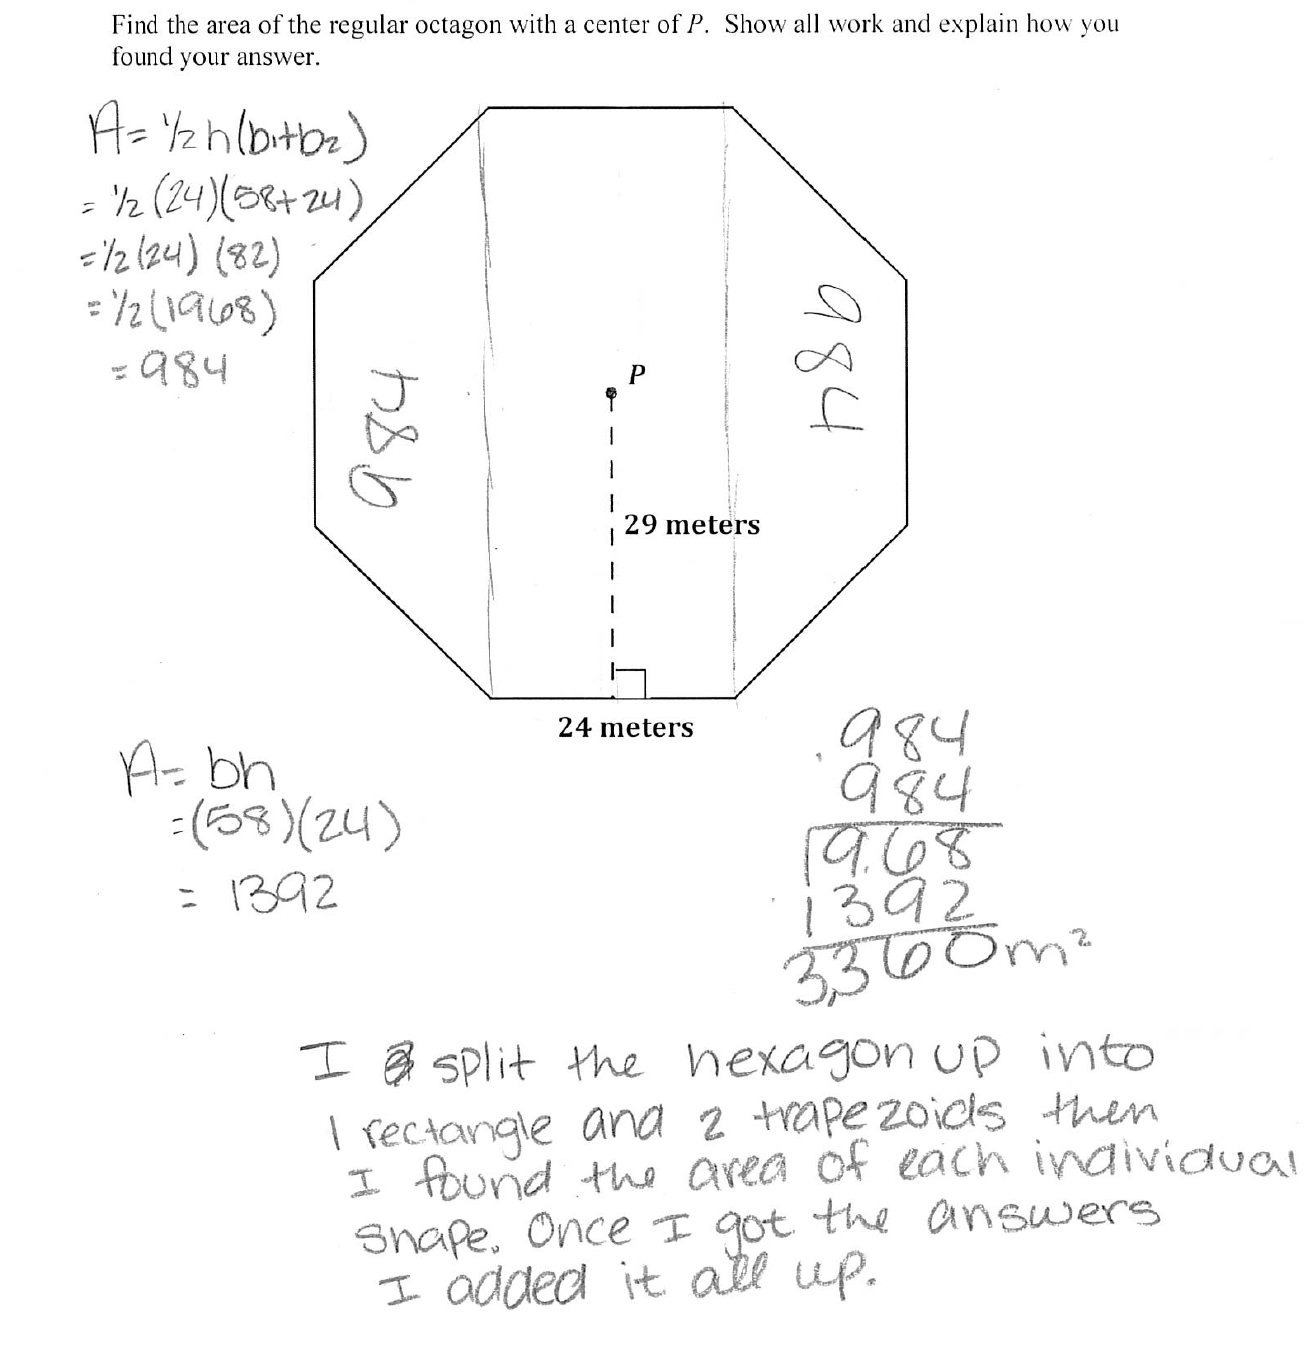 Find the area of the regular octagon with a center of P. Show all work and explain how you
found your answer.
A= 1/2 h(b1+b2)
= 1/2 (24)(58+24)
= 1/2 (24) (82)
= 1/2 (1968)
= 984
984
984
P
29 meters
24 meters
A= bh
=(58)(24)
= 1392
984
984
1968
1392
3,360m²
I split the hexagon up into
1 rectangle and 2 trapezoids then
I found the area of each individual
shape. Once I got the answers
I added it all up.